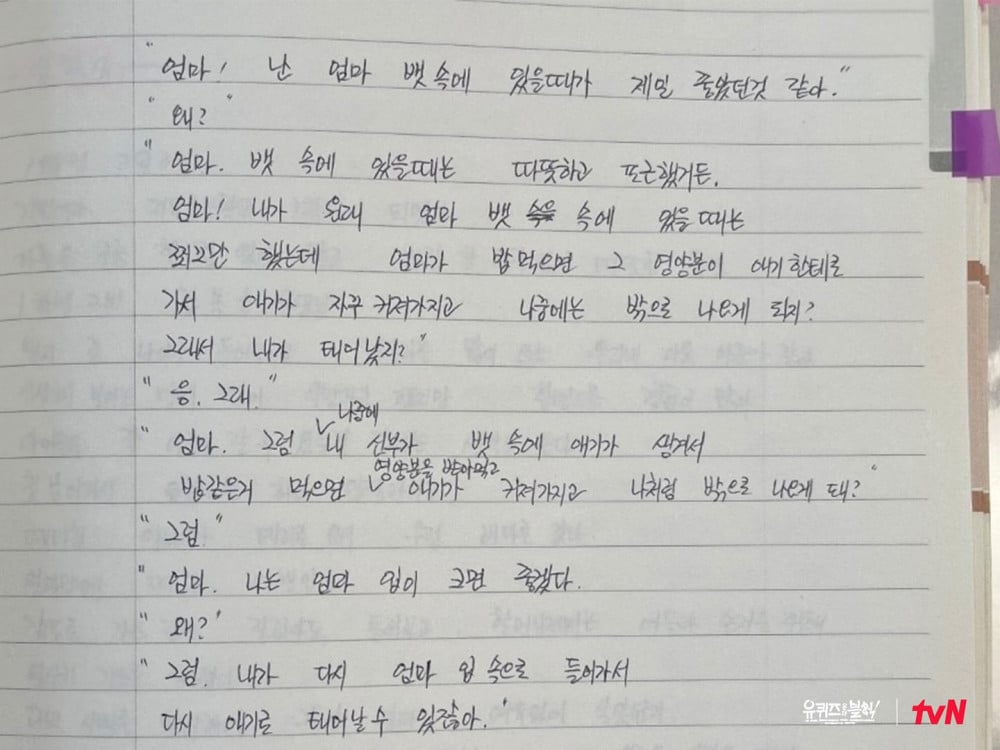 "엄마! 난 엄마 뱃속에 있을때가 제일 좋았던것 같아."
"왜?"
"엄마. 뱃 속에 있을때는 따뜻하고 포근했거든.
엄마! 내가 원래 엄마 뱃 속을 속에 있을때는
쬐끄만 했는데 엄마가 밥먹으면 그 영양분이 애기한테로
가서 애기가 자꾸 커져가지고 나중에는 밖으로 나오게 되지?
그래서 내가 태어났지?"
"응. 그래."
나중에
"엄마. 그럼 내 신부가 뱃속에 애기가 생겨서
영양분을 받아먹고
밥같은거 먹으면 애기가 커져가지고 나처럼 밖으로 나오게 돼?"
"그럼."
"엄마. 나는 엄마 입이 크면 좋겠다.
"왜?'
"그럼. 내가 다시 엄마 입속으로 들어가서
다시 애기로 태어날 수 있잖아.'
유퀴즈온더블럭! | tvN